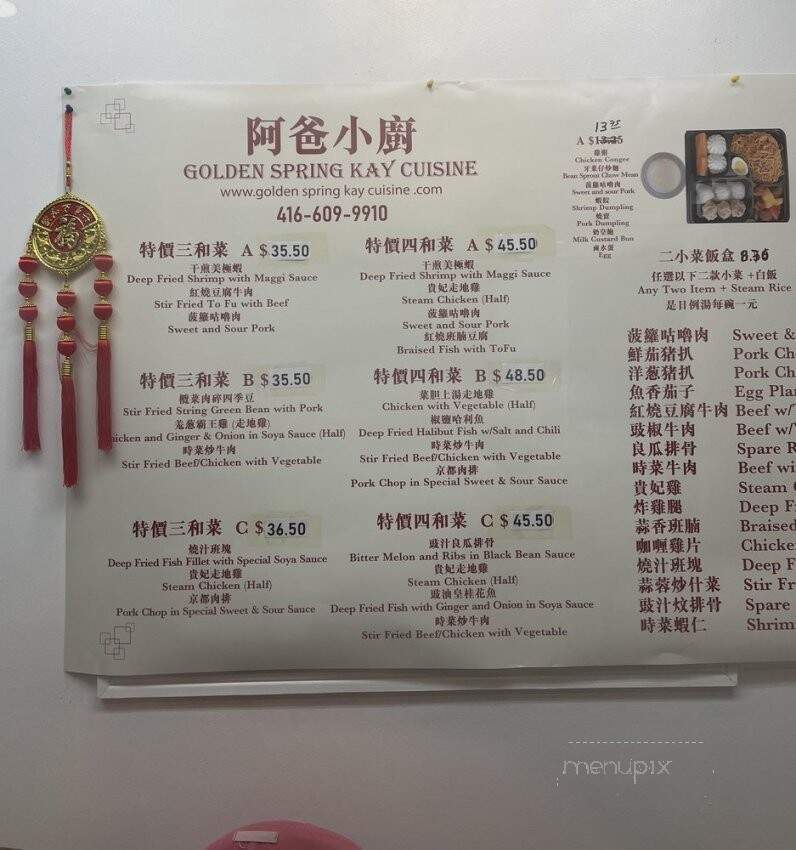 阿爸小廚
GOLDEN SPRING KAY CUISINE
www.golden spring kay cuisine .com
416-609-9910
特價三和菜 A $35.50
干煎美極蝦
Deep Fried Shrimp with Maggi Sauce
紅燒豆腐牛肉
Stir Fried To Fu with Beef
菠籮咕嚕肉
Sweet and Sour Pork
特價三和菜 B $35.50
欖菜肉碎四季豆
Stir Fried String Green Bean with Pork
羗葱霸王雞 (走地雞)
hicken and Ginger & Onion in Soya Sauce (Half)
時菜炒牛肉
Stir Fried Beef/Chicken with Vegetable
特價三和菜 C $36.50
燒汁班塊
Deep Fried Fish Fillet with Special Soya Sauce
貴妃走地雞
Steam Chicken (Half)
京都肉排
Pork Chop in Special Sweet & Sour Sauce
特價四和菜 A $45.50
干煎美極蝦
Deep Fried Shrimp with Maggi Sauce
貴妃走地雞
Steam Chicken (Half)
菠籮咕嚕肉
Sweet and Sour Pork
紅燒班腩豆腐
Braised Fish with ToFu
特價四和菜 B $48.50
菜胆上湯走地雞
Chicken with Vegetable (Half)
椒鹽哈利魚
Deep Fried Halibut Fish w/Salt and Chili
時菜炒牛肉
Stir Fried Beef/Chicken with Vegetable
京都肉排
Pork Chop in Special Sweet & Sour Sauce
特價四和菜 C $45.50
豉汁良瓜排骨
Bitter Melon and Ribs in Black Bean Sauce
貴妃走地雞
Steam Chicken (Half)
豉油皇桂花魚
Deep Fried Fish with Ginger and Onion in Soya Sauce
時菜炒牛肉
Stir Fried Beef/Chicken with Vegetable
A $13.25
雞粥
Chicken Congee
牙菜仔炒麵
Bean Sprout Chow Mean
菠籮咕嚕肉
Sweet and sour Pork
蝦餃
Shrimp Dumpling
燒賣
Pork Dumpling
奶皇飽
Milk Custard Bun
鹵水蛋
Egg
二小菜飯盒
任選以下二款小菜 +白飯
Any Two Item + Steam Rice
是日例湯每碗一元
菠籮咕嚕肉 Sweet &
鮮茄猪扒 Pork Ch
洋葱猪扒 Pork Ch
魚香茄子 Egg Plan
紅燒豆腐牛肉 Beef w/T
豉椒牛肉 Beef w/
良瓜排骨 Spare R
時菜牛肉 Beef wi
貴妃雞 Steam
炸雞腿 Deep F
蒜香班腩 Braised
咖喱雞片 Chicke
燒汁班塊 Deep F
蒜蓉炒什菜 Stir Fr
豉汁炆排骨 Spare
時菜蝦仁 Shrim
menupix